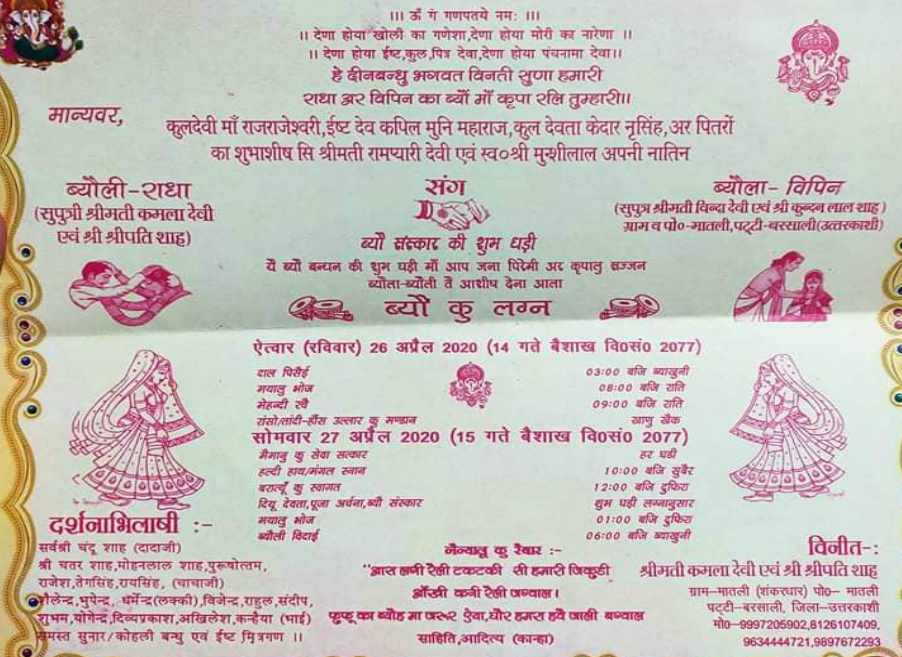 ।।। ऊँ गं गणपतये नमः ।।।
।। देणा होया खोली का गणेशा,देणा होया मोरी का नारेणा ।।
।। देणा होया ईष्ट,कुल,पित्र देवा,देणा होया पंचनामा देवा।।
हे दीनबन्धु भगवत विनती सुणा हमारी
राधा अर विपिन का ब्यौ माँ कृपा रखि तुम्हारी।।
मान्यवर,
कुलदेवी माँ राजराजेश्वरी,ईष्ट देव कपिल मुनि महाराज,कुल देवता केदार नृसिंह,अर पितरों
का शुभाशीष सि श्रीमती रामप्यारी देवी एवं स्व०श्री मुन्शीलाल अपनी नातिन
ब्यौली-राधा
(सुपुत्री श्रीमती कमला देवी
एवं श्री श्रीपति शाह)
संग
ब्यौला- विपिन
(सुपुत्र श्रीमती विन्दा देवी एवं श्री कुन्दन लाल शाह)
ग्राम व पो०-मातली,पट्टी-बरसाली(उत्तरकाशी)
ब्यौ संस्कार की शुभ घड़ी
ये ब्यौ बन्धन की शुभ घड़ी माँ आप जना पिरेमी अर कृपालु सज्जन
ब्यौला-ब्यौली तै आशीष देना आला
ब्यौ कु लग्न
ऐत्वार (रविवार) 26 अप्रैल 2020 (14 गते बैशाख वि०सं० 2077)
दाल पिसैई 03:00 बजि ब्याखुनी
मयालु भोज 08:00 बजि राति
मेहन्दी रचै 09:00 बजि राति
रांसो/तांदी-हौंस उल्लार कु मण्डाण खाणु खैक
सोमवार 27 अप्रैल 2020 (15 गते बैशाख वि०सं० 2077)
मैमानु कु सेवा सत्कार हर घड़ी
हल्दी हाथ/मंगल स्नान 10:00 बजि सुबैर
बरात्यूँ कु स्वागत 12:00 बजि दुफिरा
दियू देवता,पूजा अर्चना,ब्यौ संस्कार शुभ घड़ी लग्नानुसार
मयालु भोज 01:00 बजि दुफिरा
ब्यौली विदाई 06:00 बजि ब्याखुनी
दर्शनाभिलाषी :-
सर्वश्री चंदू शाह (दादाजी)
श्री चतर शाह,मोहनलाल शाह,पुरूषोत्तम,
राजेश,तेगसिंह,रायसिंह, (चाचाजी)
शैलेन्द्र,भुपेन्द्र, धर्मेन्द्र(लक्की),विजेन्द्र,राहुल,संदीप,
शुभम,योगेन्द्र,दिव्यप्रकाश,अखिलेश,कन्हैया (भाई)
समस्त सुनार/कोहली बन्धु एवं ईष्ट मित्रगण ।।
नैन्यालु कु रैबार :-
"आस लगी रैली टकटकी सी हमारी जिकुड़ी
आँखी बनी रैली जग्वाल।
फूफू का ब्यौह मा जरूर ऐवा,घोर हमरा हवै जाली बग्वाल
साहिति,आदित्य (कान्हा)
विनीत-:
श्रीमती कमला देवी एवं श्री श्रीपति शाह
ग्राम-मातली (शंकरधार) पो०- मातली
पट्टी-बरसाली, जिला-उत्तरकाशी
मो०-9997205902,8126107409,
9634444721,9897672293